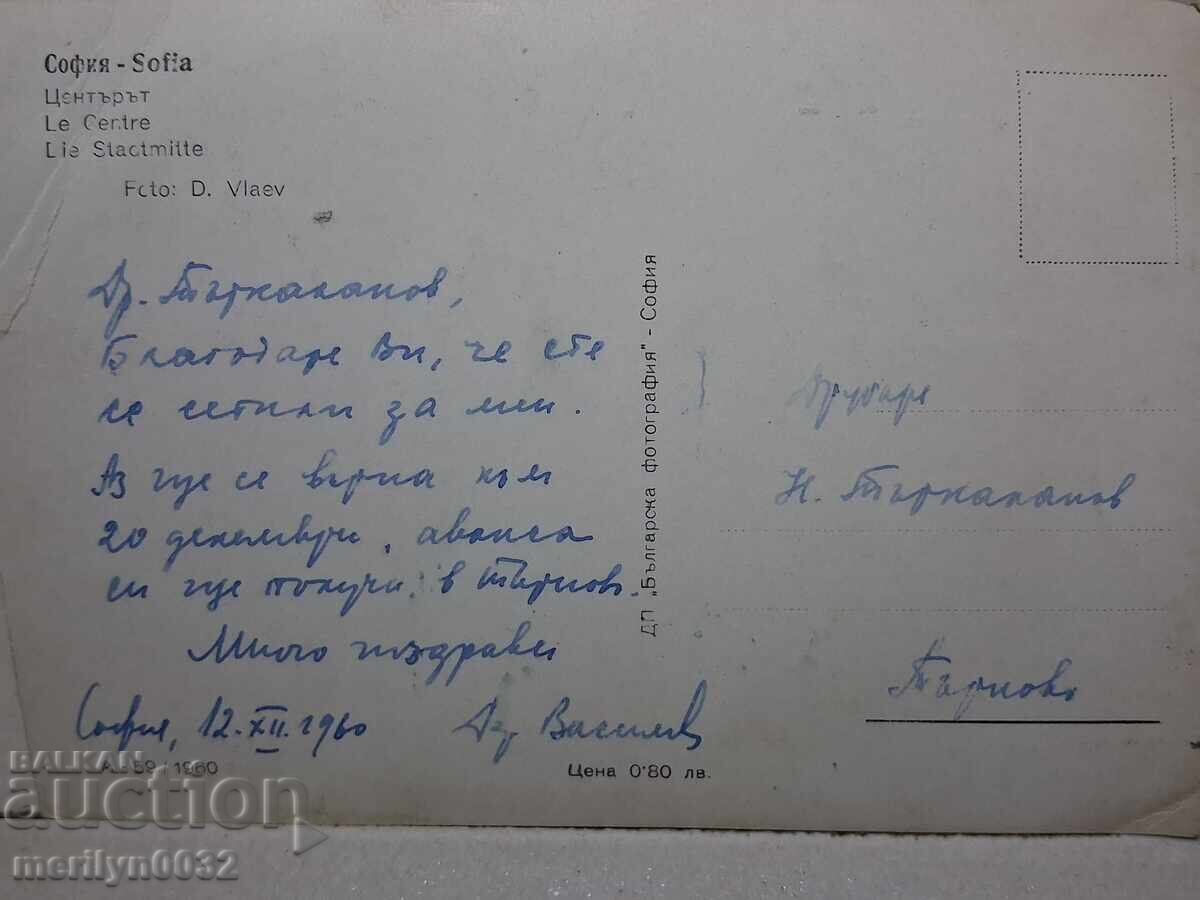 София - Sofia
Центърът
Le Centre
Die Stadtmitte
Foto: D. Vlaev
Др. Търкаланов,
Благодаря Ви, че сте
се сетили за мен.
Аз ще се върна към
20 декември, аванса
си ще получа в Търново.
Много поздрави
София, 12.XII.1960
Василев
А 59 / 1960
Цена 0·80 лв.
ДП „Българска фотография" - София
Другаря
Н. Търкаланов
Търново
BALKAN
auction
merilyn0032